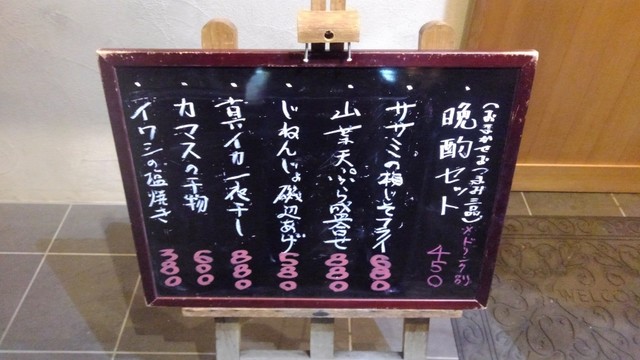 ・晩酌セット 450
(おまかせおつまみ三品)
※ドリンク別
・ササミの梅じそフライ 680
・山菜天ぷら盛合せ 880
・じねんじょ磯辺あげ 580
・真イカ一夜干し 880
・カマスの干物 600
・イワシの塩焼き 380
WELCOME